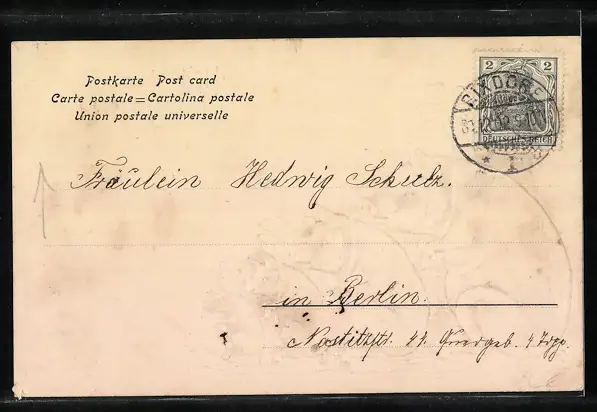 Postkarte Post card
Carte postale = Cartolina postale
Union postale universelle
2 2
DEUTSCHES REICH
RIXDORF
* 1
Fräulein Hedwig Schulz.
in Berlin.
Nostitzstr. 44. Quergeb. 4 Trpp.